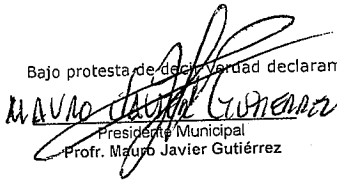 Bajo protesta de decir verdad declaram
MAURO JAVIER GUTIERREZ
Presidente Municipal
Profr. Mauro Javier Gutiérrez